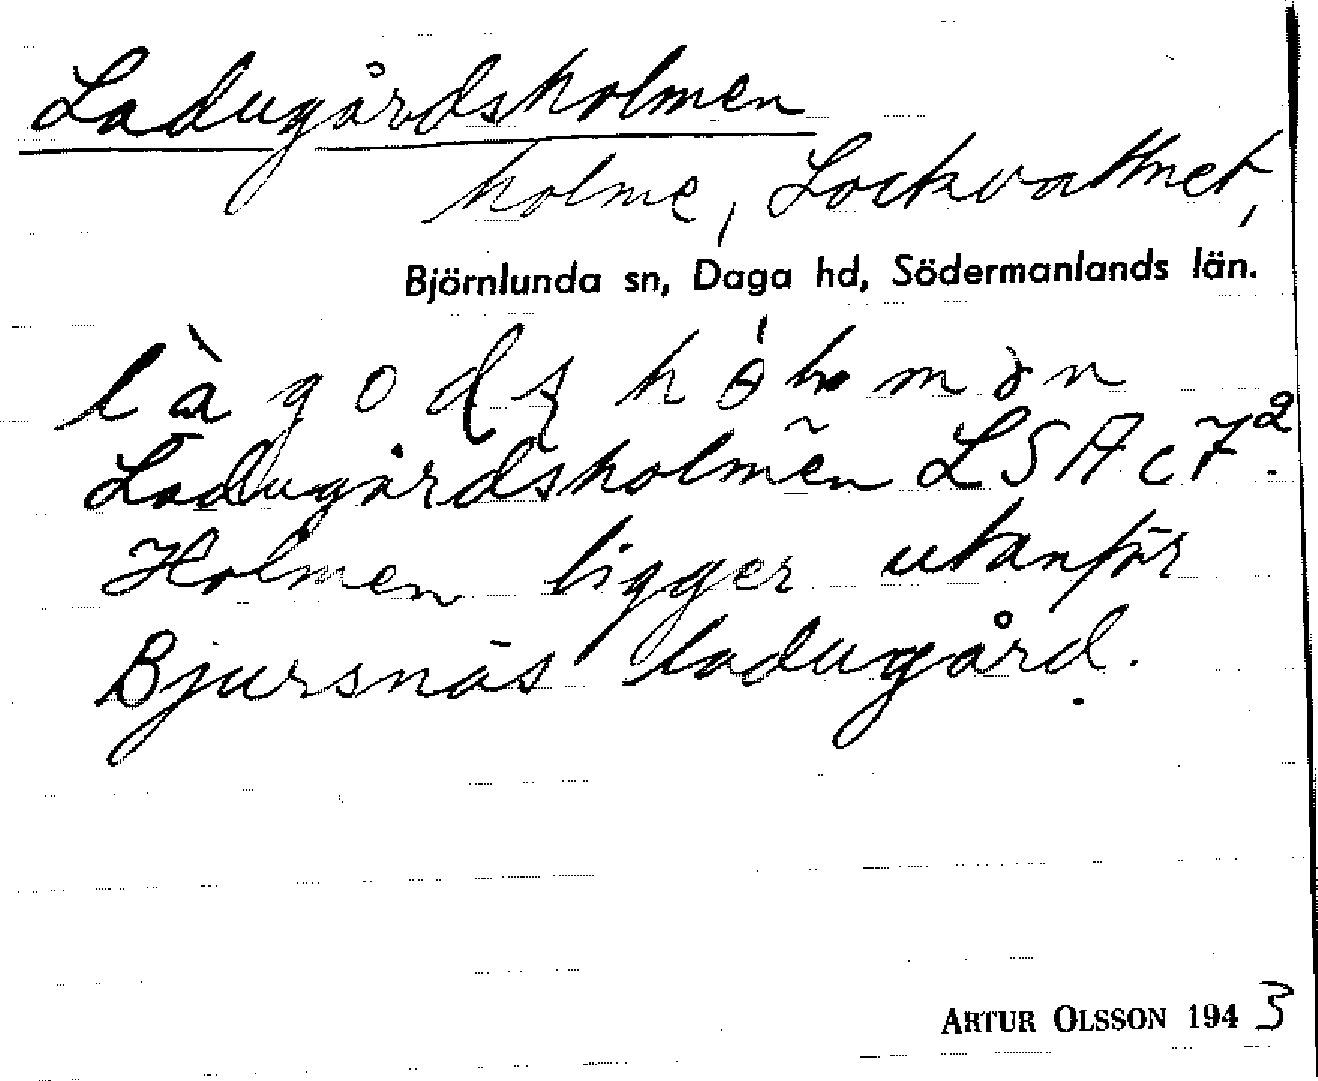 Ladugårdsholmen
holme, Lockvattnet,
Björnlunda sn, Daga hd, Södermanlands län.
Ladugårdsholmen LSA c 7².
Holmen ligger utanför
Bjursnäs ladugård.
ARTUR OLSSON 1943